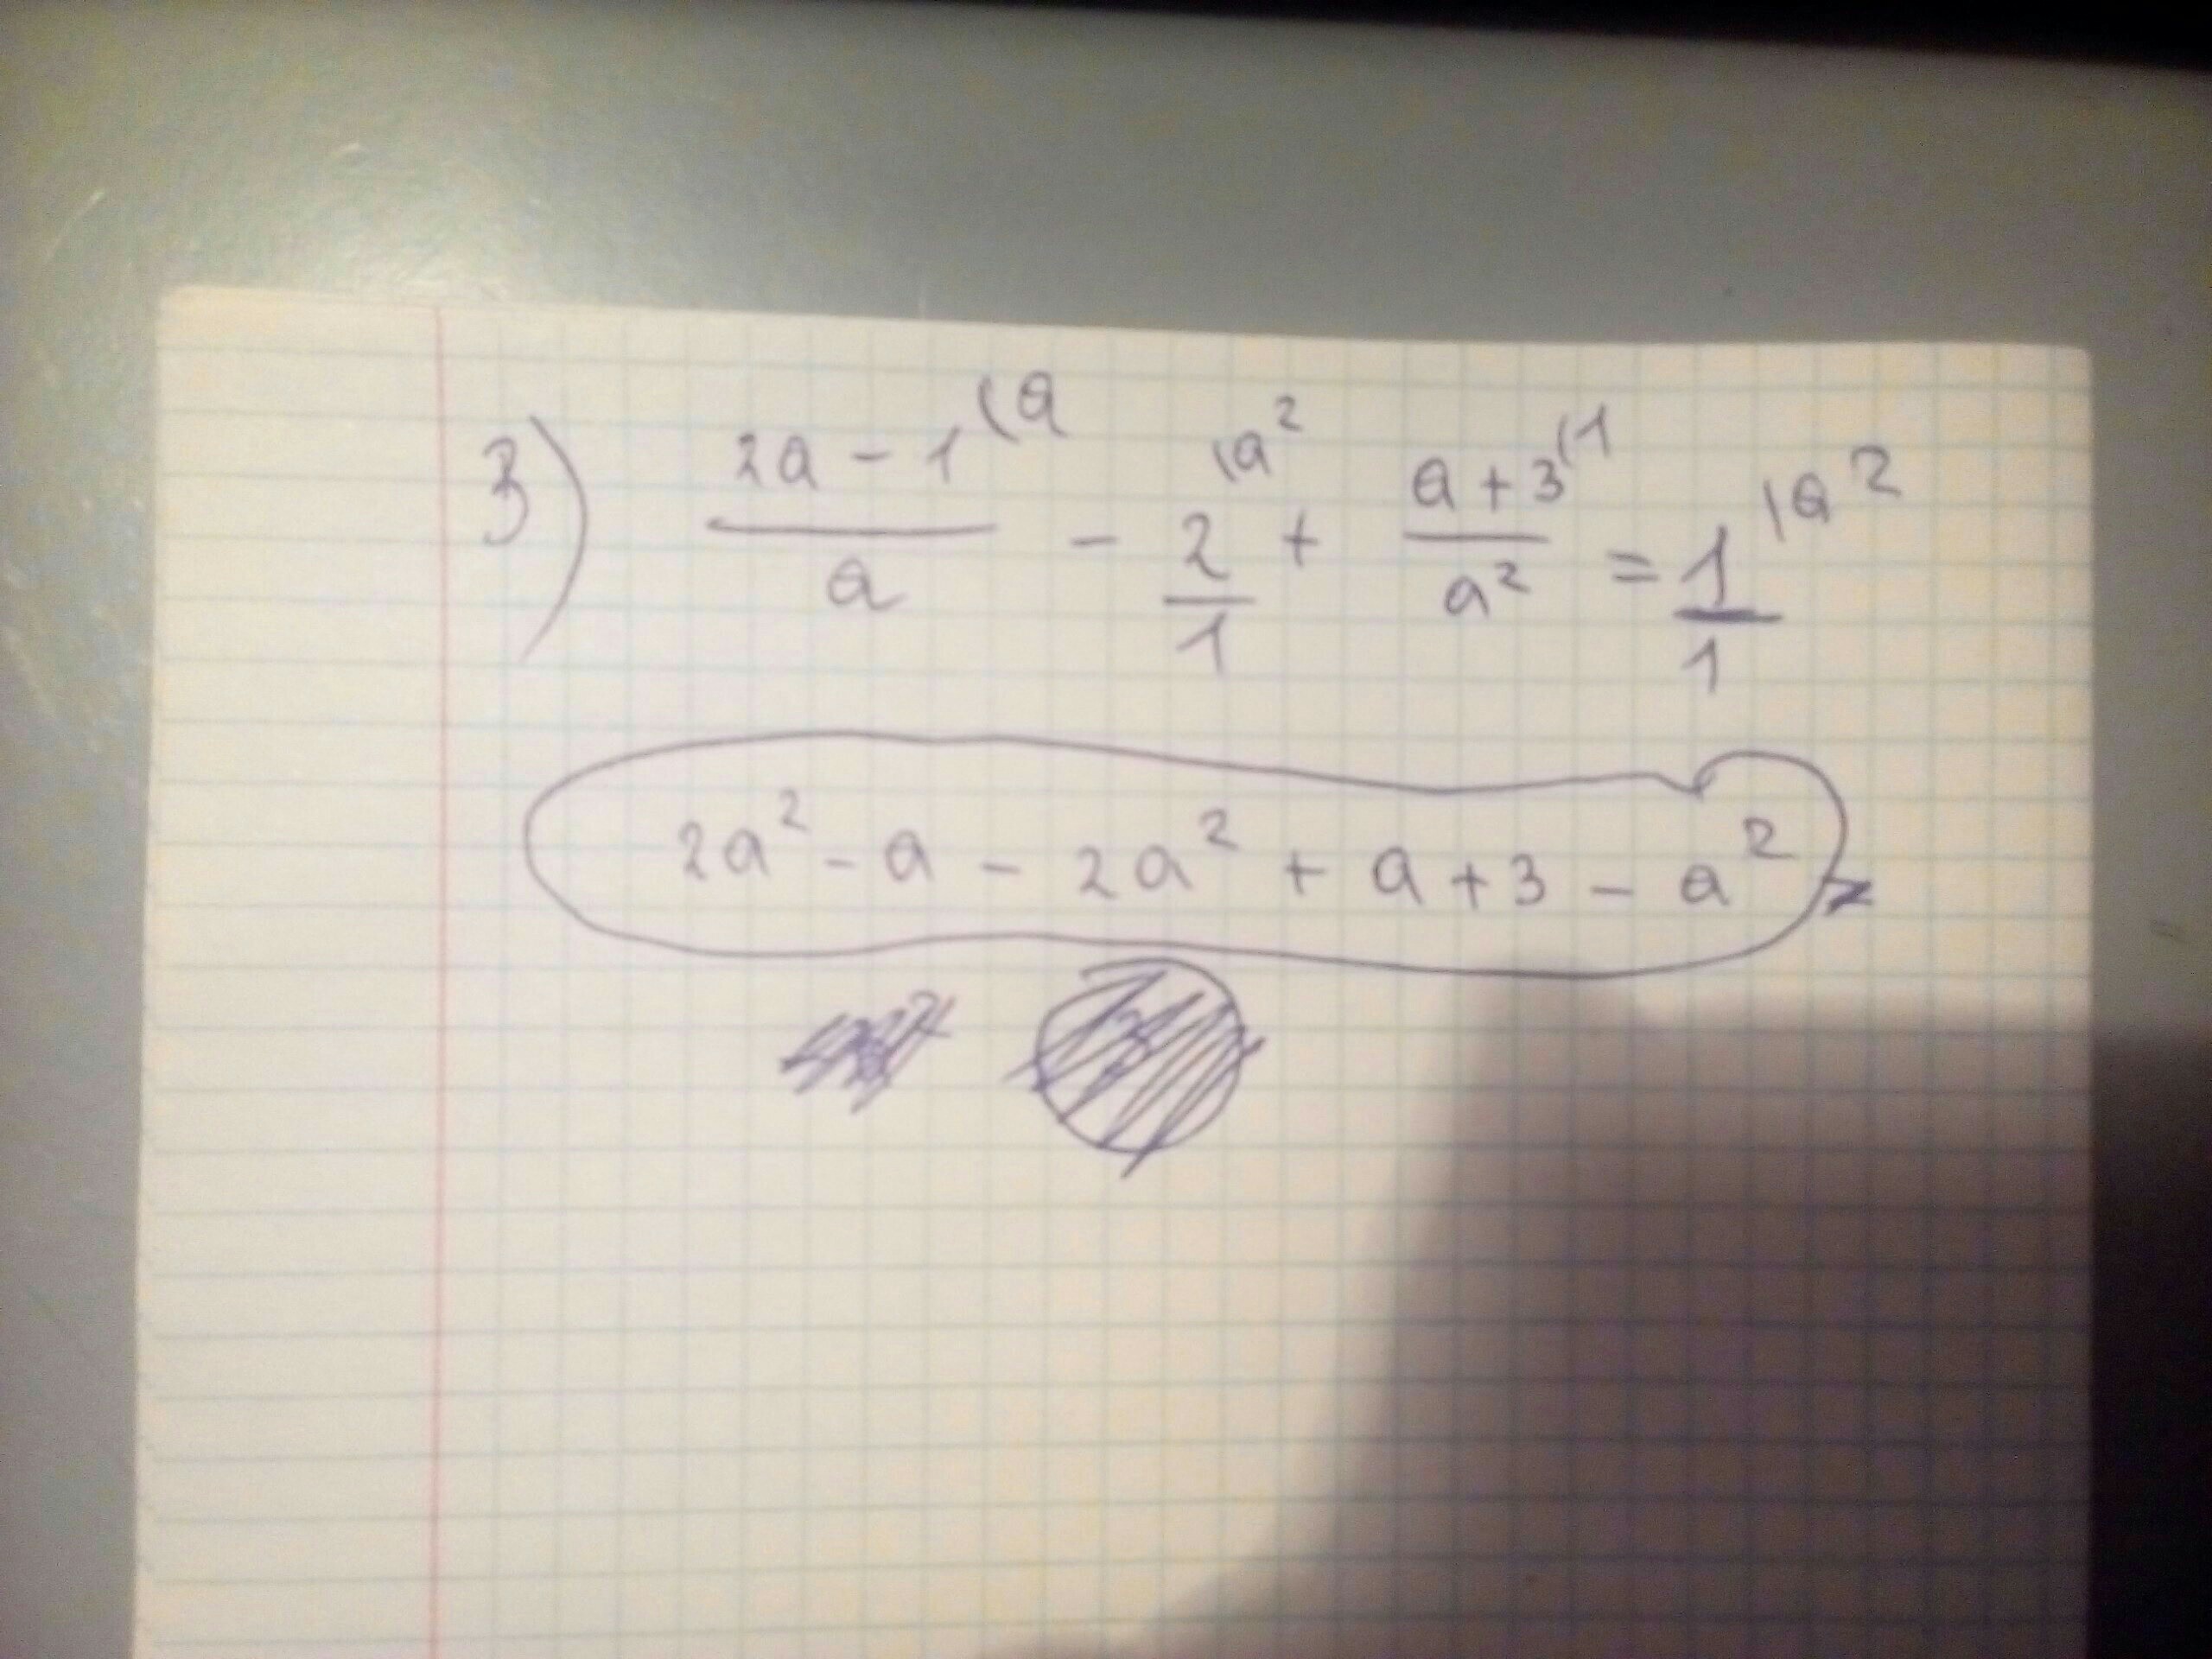 3) (2a - 1)/a \a - 2/1 \a² + (a + 3)/a² \1 = 1/1 \a²
2a² - a - 2a² + a + 3 - a² =